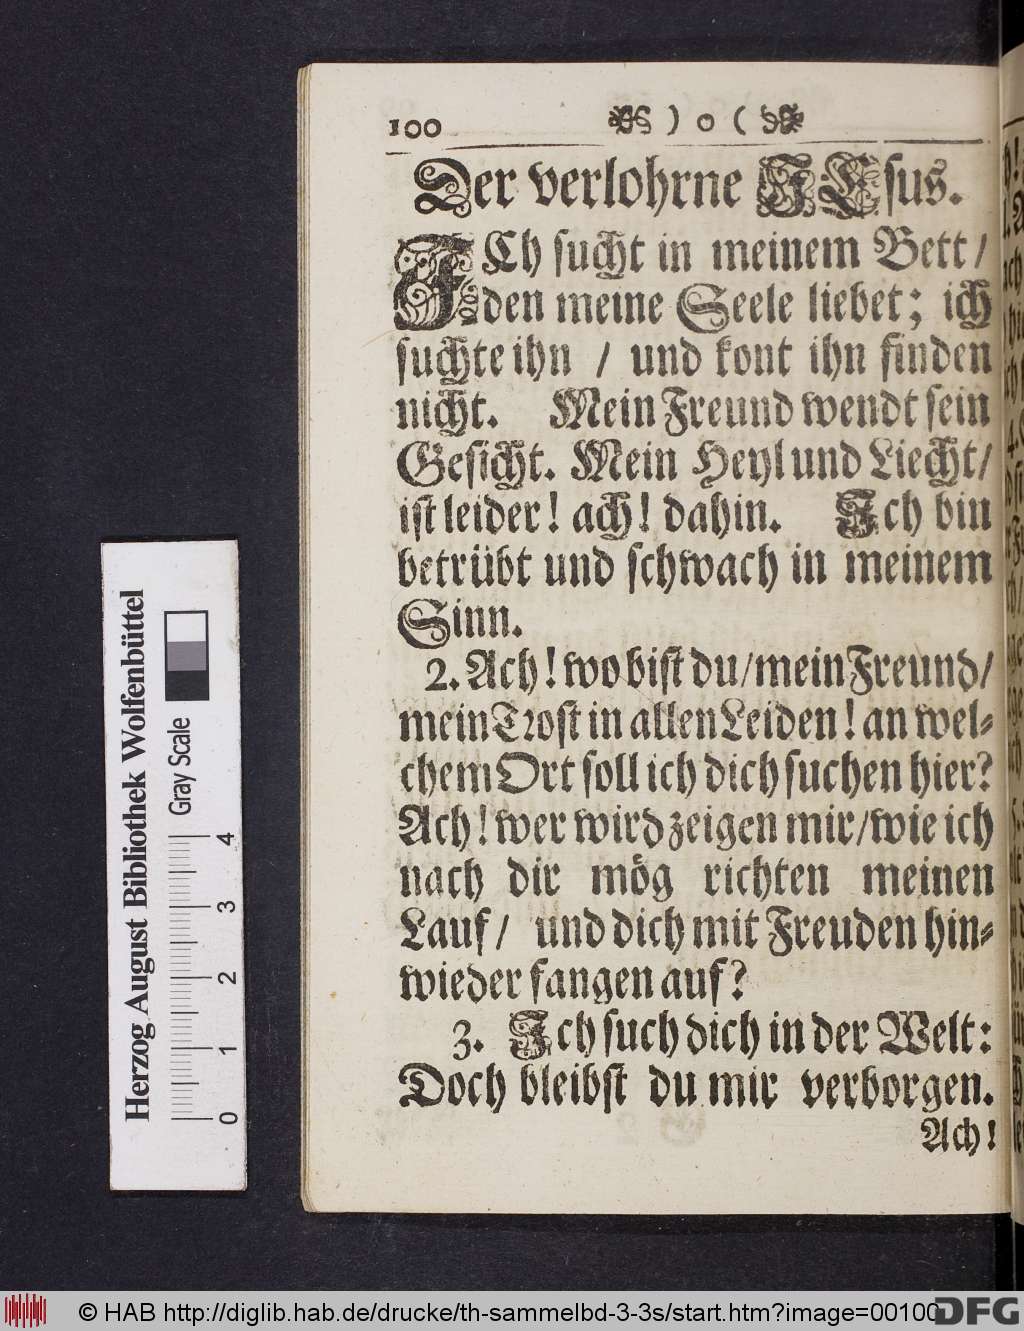 100 ) o (
Der verlohrne JEsus.
JCh sucht in meinem Bett /
den meine Seele liebet; ich
suchte ihn / und kont ihn finden
nicht. Mein Freund wendt sein
Gesicht. Mein Heyl und Liecht /
ist leider! ach! dahin. Ich bin
betrübt und schwach in meinem
Sinn.
2. Ach! wo bist du / mein Freund /
mein Trost in allen Leiden! an wel-
chem Ort soll ich dich suchen hier?
Ach! wer wird zeigen mir / wie ich
nach dir mög richten meinen
Lauf / und dich mit Freuden hin-
wieder fangen auf?
3. Ich such dich in der Welt:
Doch bleibst du mir verborgen.
Ach!
Herzog August Bibliothek Wolfenbüttel
Gray Scale
0 1 2 3 4
© HAB http://diglib.hab.de/drucke/th-sammelbd-3-3s/start.htm?image=00100
DFG